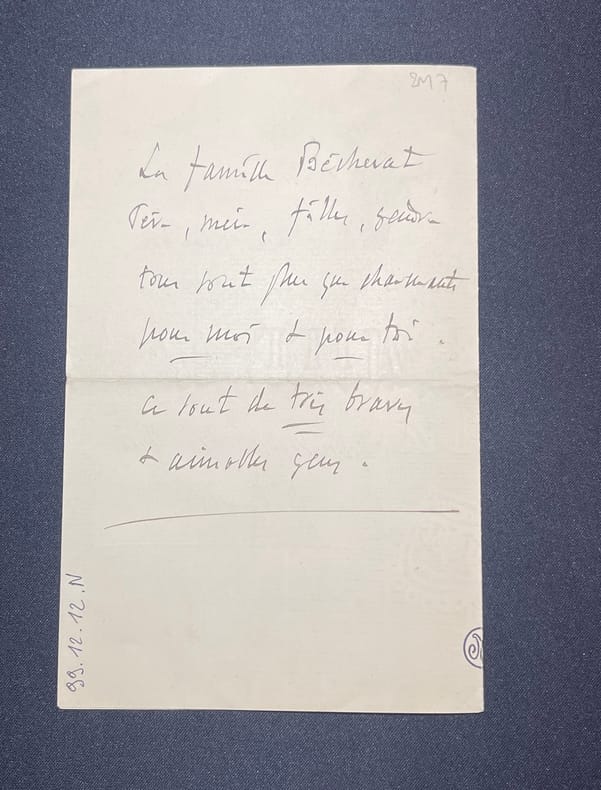 2M7
La famille Bécherat
Père, mère, filles, gendre
tous sont plus que charmants
pour moi & pour toi.
Ce sont de très braves
& aimables gens.
99.12.12.N